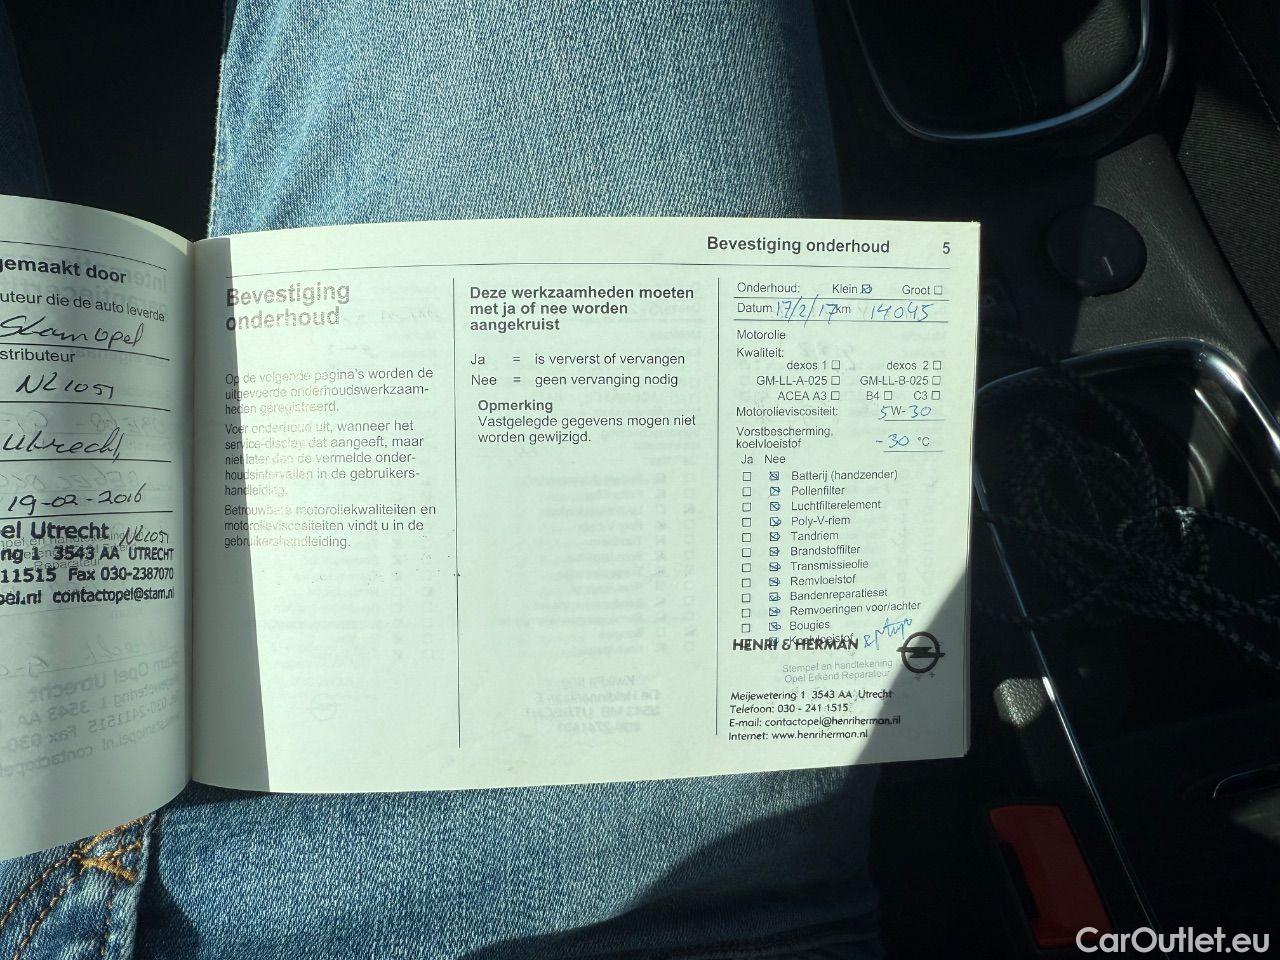 gemaakt door
uteur die de auto leverde
Stam opel
stributeur
NL1051
Utrecht
19-02-2016
el Utrecht NL1051
ng 1 3543 AA UTRECHT
Reparateur
11515 Fax 030-2387070
pel.nl contactopel@stam.nl
Bevestiging onderhoud 5
Bevestiging
onderhoud
Op de volgende pagina's worden de
uitgevoerde onderhoudswerkzaam-
heden geregistreerd.
Voer onderhoud uit, wanneer het
service-display dat aangeeft, maar
niet later dan de vermelde onder-
houdsintervallen in de gebruikers-
handleiding.
Betrouwbare motoroliekwaliteiten en
motorolieviscositeiten vindt u in de
gebruikershandleiding.
Deze werkzaamheden moeten
met ja of nee worden
aangekruist
Ja = is ververst of vervangen
Nee = geen vervanging nodig
Opmerking
Vastgelegde gegevens mogen niet
worden gewijzigd.
Onderhoud: Klein Groot
Datum 17/2/17 km 14045
Motorolie
Kwaliteit:
dexos 1 dexos 2
GM-LL-A-025 GM-LL-B-025
ACEA A3 B4 C3
Motorolieviscositeit: 5W-30
Vorstbescherming,
koelvloeistof -30 °C
Ja Nee
Batterij (handzender)
Pollenfilter
Luchtfilterelement
Poly-V-riem
Tandriem
Brandstoffilter
Transmissieolie
Remvloeistof
Bandenreparatieset
Remvoeringen voor/achter
Bougies
Koelvloeistof
HENRI & HERMAN
Stempel en handtekening
Opel Erkend Reparateur
Meijewetering 1 3543 AA Utrecht
Telefoon: 030 - 241 1515
E-mail: contactopel@henriherman.nl
Internet: www.henriherman.nl
CarOutlet.eu